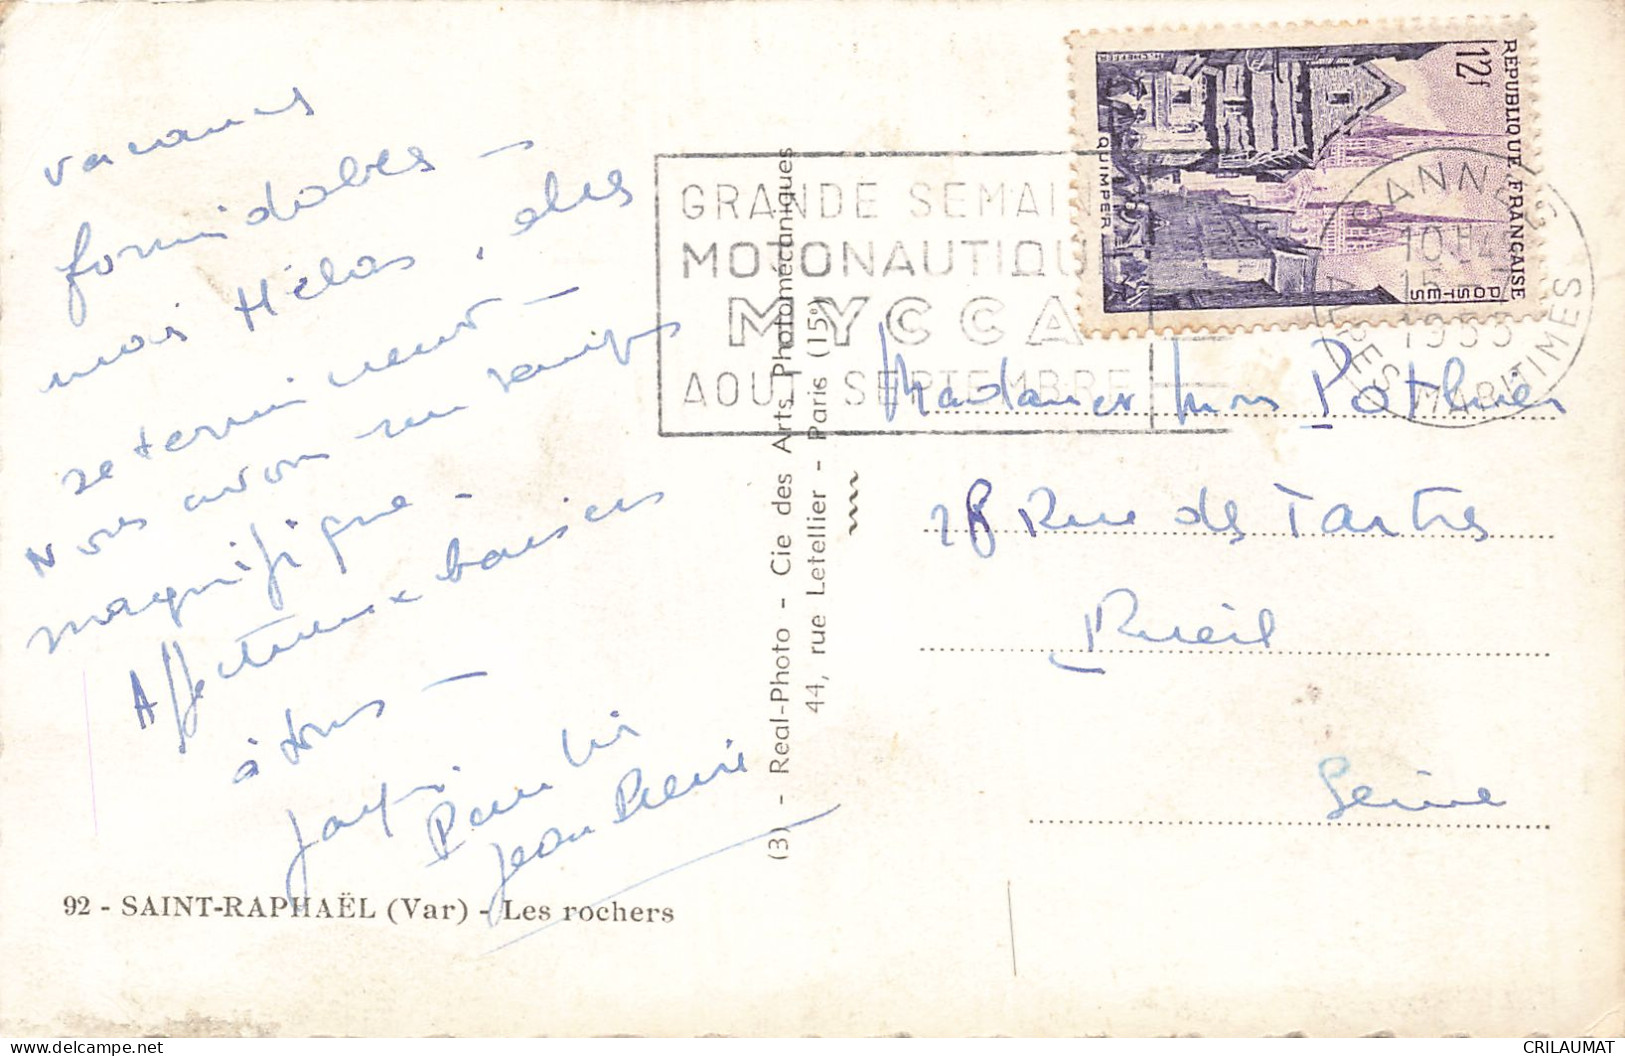 vacances
formidables -
mais Hélas, elles
se terminent -
Nous avons un temps
magnifique -
Affectueux baisers
à tous -
Jean Pierre
92 - SAINT-RAPHAËL (Var) - Les rochers
(3) - Real-Photo - Cie des Arts Photomécaniques
44, rue Letellier - Paris (15e)
GRANDE SEMAIN
MOTONAUTIQU
MYCCA
AOUT SEPTEMBRE
12f
REPUBLIQUE FRANÇAISE
POSTES
QUIMPER
H. CHEFFER
CANNES
10 H 4
15
1955
ALPES MARITIMES
Madame Pothier
28 Rue des Tartres
Rueil
Seine
CRILAUMAT